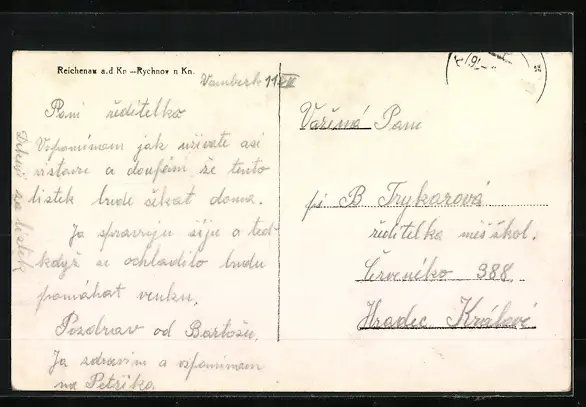 Reichenau a.d Kn –Rychnov n Kn.
Vamberk 11 VII
Paní ředitelko
Vzpomínám jak užíváte asi
a doufám že tento
lístek bude čekat doma.
Ja spravuju šiju a teď
když se ochladilo budu
pomáhat venku.
Pozdrav od Bartošu.
Ja zdravim a vzpomínam
na Petříka.
Děkuji za lístek
Vážená Pani
pí B Trykarová
ředitelka měš. škol.
Červeného 988.
Hradec Králové